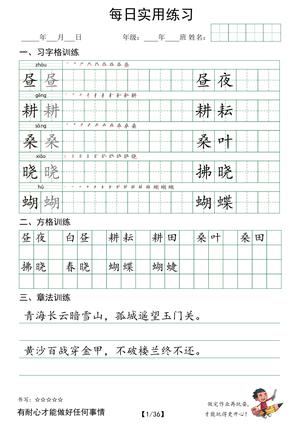 每日实用练习
年 月 日 年级: 年 班 姓名:
一、习字格训练
zhòu
昼 昼 昼 夜
gēng
耕 耕 耕 耘
sāng
桑 桑 桑 叶
xiǎo
晓 晓 拂 晓
hú
蝴 蝴 蝴 蝶
二、方格训练
昼夜 白昼 耕耘 耕田 桑叶 桑田
拂晓 春晓 蝴蝶 蝴蜨
三、章法训练
青海长云暗雪山，孤城遥望玉门关。
黄沙百战穿金甲，不破楼兰终不还。
书写: ☆☆☆☆☆
有耐心才能做好任何事情
【1/36】
做完作业再玩耍，
才能玩得更开心！